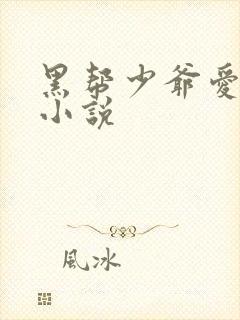 黑帮少爷愛
小說
風冰